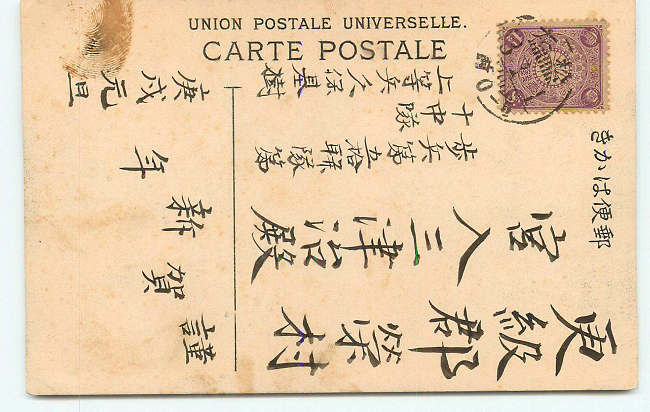 UNION POSTALE UNIVERSELLE.
CARTE POSTALE
郵便はかき
更級郡榮村
宮入三津治殿
歩兵第五拾聯隊第
十中隊
上等兵久保星樹
謹賀新年
庚戌元旦